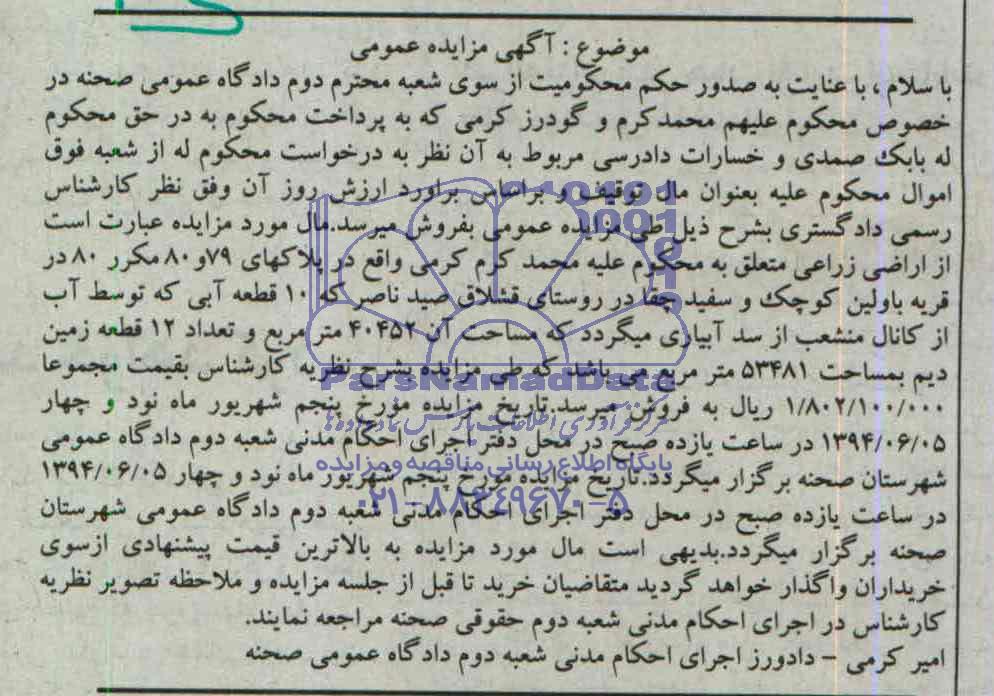 موضوع : آگهی مزایده عمومی
با سلام ، با عنایت به صدور حکم محکومیت از سوی شعبه محترم دوم دادگاه عمومی صحنه در
خصوص محکوم علیهم محمدکرم و گودرز کرمی که به پرداخت محکوم به در حق محکوم
له بابک صمدی و خسارات دادرسی مربوط به آن نظر به درخواست محکوم له از شعبه فوق
اموال محکوم علیه بعنوان مال توقیف و براساس براورد ارزش روز آن وفق نظر کارشناس
رسمی دادگستری بشرح ذیل طی مزایده عمومی بفروش میرسد.مال مورد مزایده عبارت است
از اراضی زراعی متعلق به محکوم علیه محمد کرم کرمی واقع در پلاکهای ۷۹و۸۰ مکرر ۸۰ در
قریه باولین کوچک و سفید چقا در روستای قشلاق صید ناصر که ۱۰ قطعه آبی که توسط آب
از کانال منشعب از سد آبیاری میگردد که مساحت آن ۴۰۴۵۲ متر مربع و تعداد ۱۲ قطعه زمین
دیم بمساحت ۵۳۴۸۱ متر مربع می باشد که طی مزایده بشرح نظریه کارشناس بقیمت مجموعا
۱/۸۰۲/۱۰۰/۰۰۰ ریال به فروش میرسد.تاریخ مزایده مورخ پنجم شهریور ماه نود و چهار
۱۳۹۴/۰۶/۰۵ در ساعت یازده صبح در محل دفتر اجرای احکام مدنی شعبه دوم دادگاه عمومی
شهرستان صحنه برگزار میگردد.تاریخ مزایده مورخ پنجم شهریور ماه نود و چهار ۱۳۹۴/۰۶/۰۵
در ساعت یازده صبح در محل دفتر اجرای احکام مدنی شعبه دوم دادگاه عمومی شهرستان
صحنه برگزار میگردد.بدیهی است مال مورد مزایده به بالاترین قیمت پیشنهادی ازسوی
خریداران واگذار خواهد گردید متقاضیان خرید تا قبل از جلسه مزایده و ملاحظه تصویر نظریه
کارشناس در اجرای احکام مدنی شعبه دوم حقوقی صحنه مراجعه نمایند.
امیر کرمی – دادورز اجرای احکام مدنی شعبه دوم دادگاه عمومی صحنه
ParsNamadData
پایگاه اطلاع رسانی مناقصه و مزایده
۰۲۱-۸۸۳۴۹۶۷۰-۵